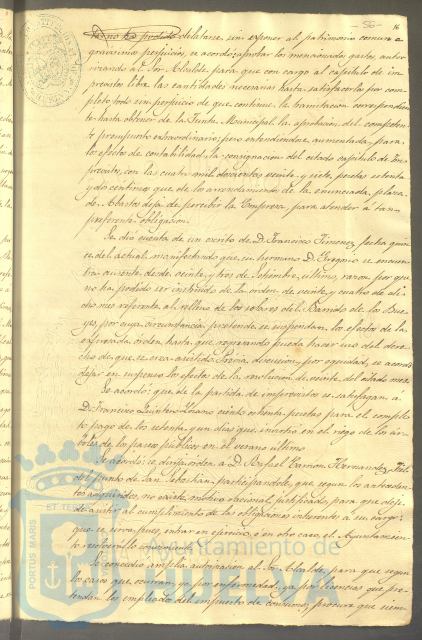 56
16
dilatarse sin exponer al patrimonio comun a
gravisimos perjuicios, se acordó: aprobar los mencionados gastos, autori
zando al Sor. Alcalde para que con cargo al capitulo de im
previstos libre las cantidades necesarias hasta satisfacerlos por com
pleto, todo sin perjuicio de que continue la tramitacion correspondien
te hasta obtener de la Junta Municipal la aprobacion del competen
te presupuesto extraordinario; pero entendiendose aumentada, para
los efectos de contabilidad, la consignacion del citado capitulo de Im
previstos, con las cuatro mil doscientas veinte y siete pesetas setenta
y dos centimos que de los arrendamientos de la enunciada plaza
de Abastos deja de percibir la Empresa, para atender á tan
preferente obligacion.
Se dió cuenta de un escrito de D. Francisco Jimenez, fecha quin
ce del actual, manifestando que su hermano D. Gregorio se encuen
tra ausente desde veinte y tres de Setiembre último, razon por que
no ha podido ser instruido de la orden de veinte y cuatro de di
cho mes referente al relleno de los solares del Barrido de los Bue
yes, por cuya circunstancia pretende se suspendan los efectos de la
expresada orden hasta que regresando pueda hacer uso del dere
cho de que se crea asistido. Previa discusion, por equidad, se acordó
dejar en suspenso los efectos de la resolucion de veinte del citado mes.
Se acordó: que de la partida de imprevistos se satisfagan á
D. Francisco Quintero Lozano ciento ochenta pesetas para el comple
to pago de los setenta y un dias que invirtió en el riego de los ár
boles de los paseos públicos en el verano último.
Se acordó: se dirija orden á D. Rafael Carrion Hernandez, Fiel
del punto de San Sebastian, participandole, que segun los anteceden
tes adquiridos, no existe motivo racional, justificado, para que deje
de asistir al cumplimiento de las obligaciones inherentes á su cargo:
que se sirva, pues, entrar en ejercicio, ó en otro caso, el Ayuntamien
to resolverá lo conveniente.
Se concedió amplia autorizacion al Sor. Alcalde, para que segun
los casos que ocurran, ya por enfermedad, ya por licencias que pre
tendan los empleados del impuesto de consumos, procure que siem
PORTUS MARIS
ET TERRE
Ayuntamiento de
HUELVA